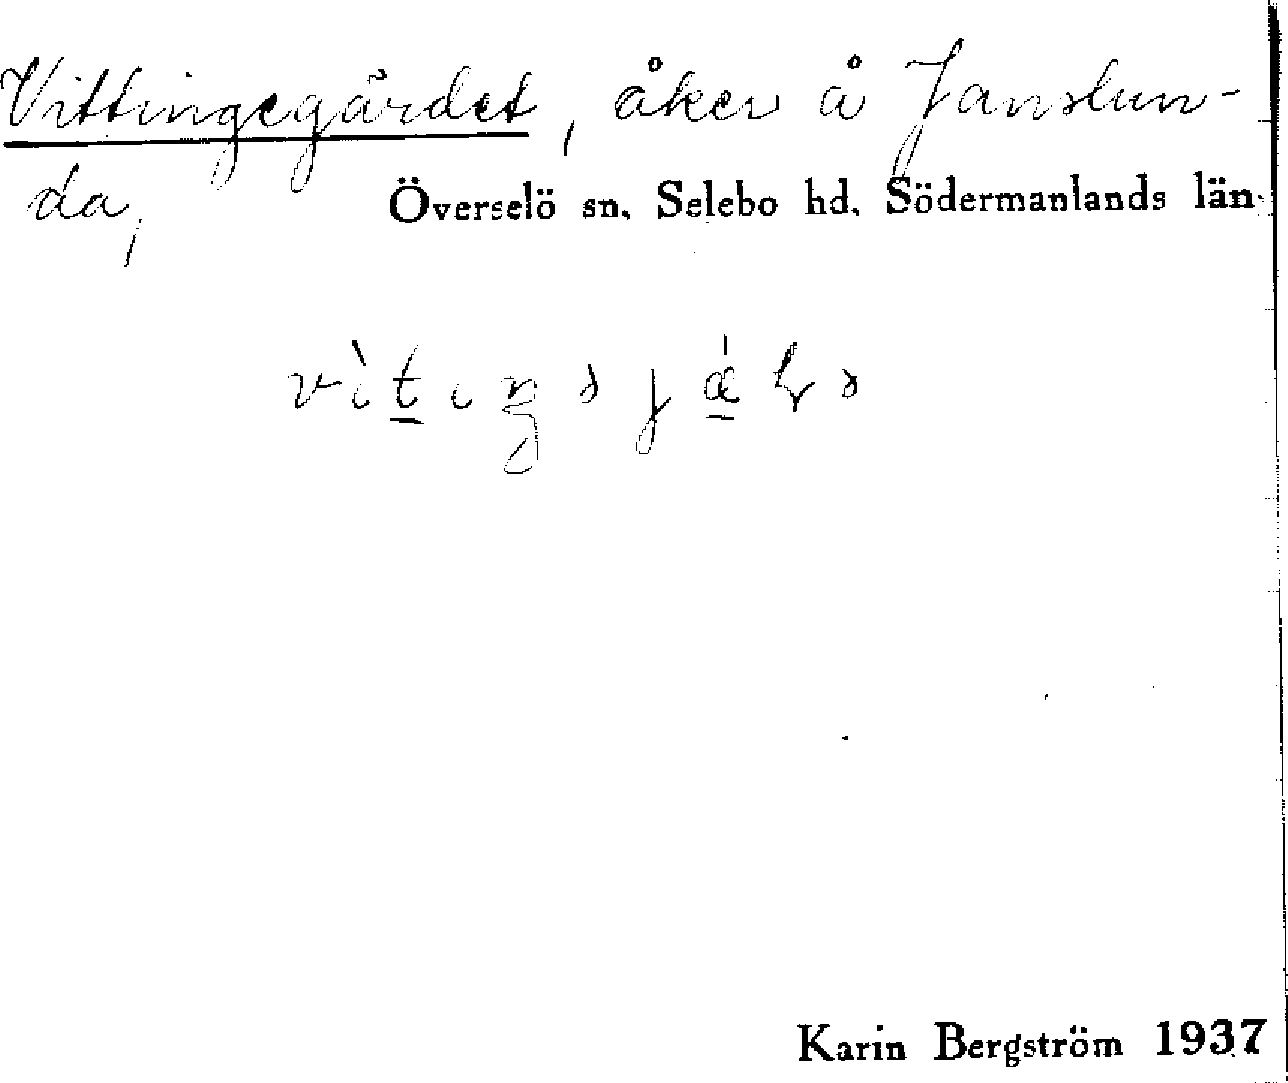 Vittingegärdet, åker å Janslun-
da,
Överselö sn. Selebo hd. Södermanlands län
Karin Bergström 1937